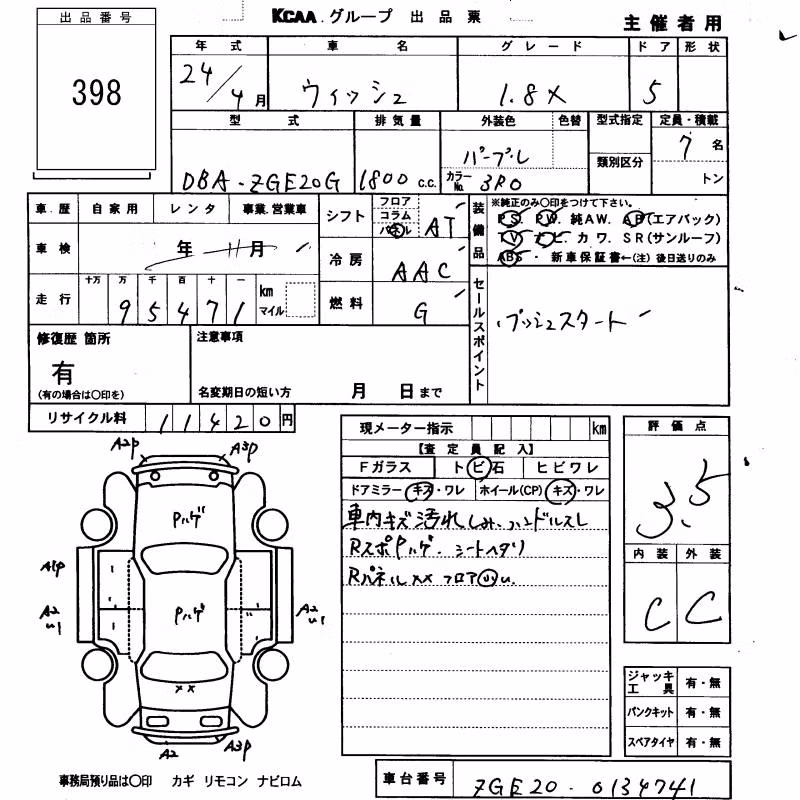 出品番号
398
KCAA.グループ 出品票
主催者用
年式 車名 グレード ドア 形状
24/4月 ウィッシュ 1.8X 5
型式 排気量 外装色 色替 型式指定 定員・積載
類別区分
DBA-ZGE20G 1800 c.c. パープル 7名
カラーNo. 3R0 トン
車歴 自家用 レンタ 事業.営業車
車検 年 11月
走行 十万 万 千 百 十 一
95471 km マイル
シフト フロア コラム パネル AT
冷房 AAC
燃料 G
装備品
※純正のみ○印をつけて下さい。
PS. PW. 純AW. AB(エアバック)
TV. ナビ. カワ. SR(サンルーフ)
ABS・ 新車保証書←(注) 後日送りのみ
セールスポイント
プッシュスタート
修復歴 箇所
有
(有の場合は○印を)
注意事項
名変期日の短い方 月 日まで
リサイクル料 11420円
現メーター指示 km
【査定員記入】
Fガラス トビ石 ヒビワレ
ドアミラー キズ・ワレ ホイール(CP) キズ・ワレ
車内キズ汚れしみ、ハンドルスレ
RスポPハゲ、シートヘタリ
Rパネルxx フロア
評価点
3.5
内装 外装
C C
A2P A3P
Pハゲ
A1P
A2 U1
Pハゲ
A2 U1
xx
A2 A3P
ジャッキ工具 有・無
パンクキット 有・無
スペアタイヤ 有・無
事務局預り品は○印 カギ リモコン ナビロム
車台番号 ZGE20-0134741